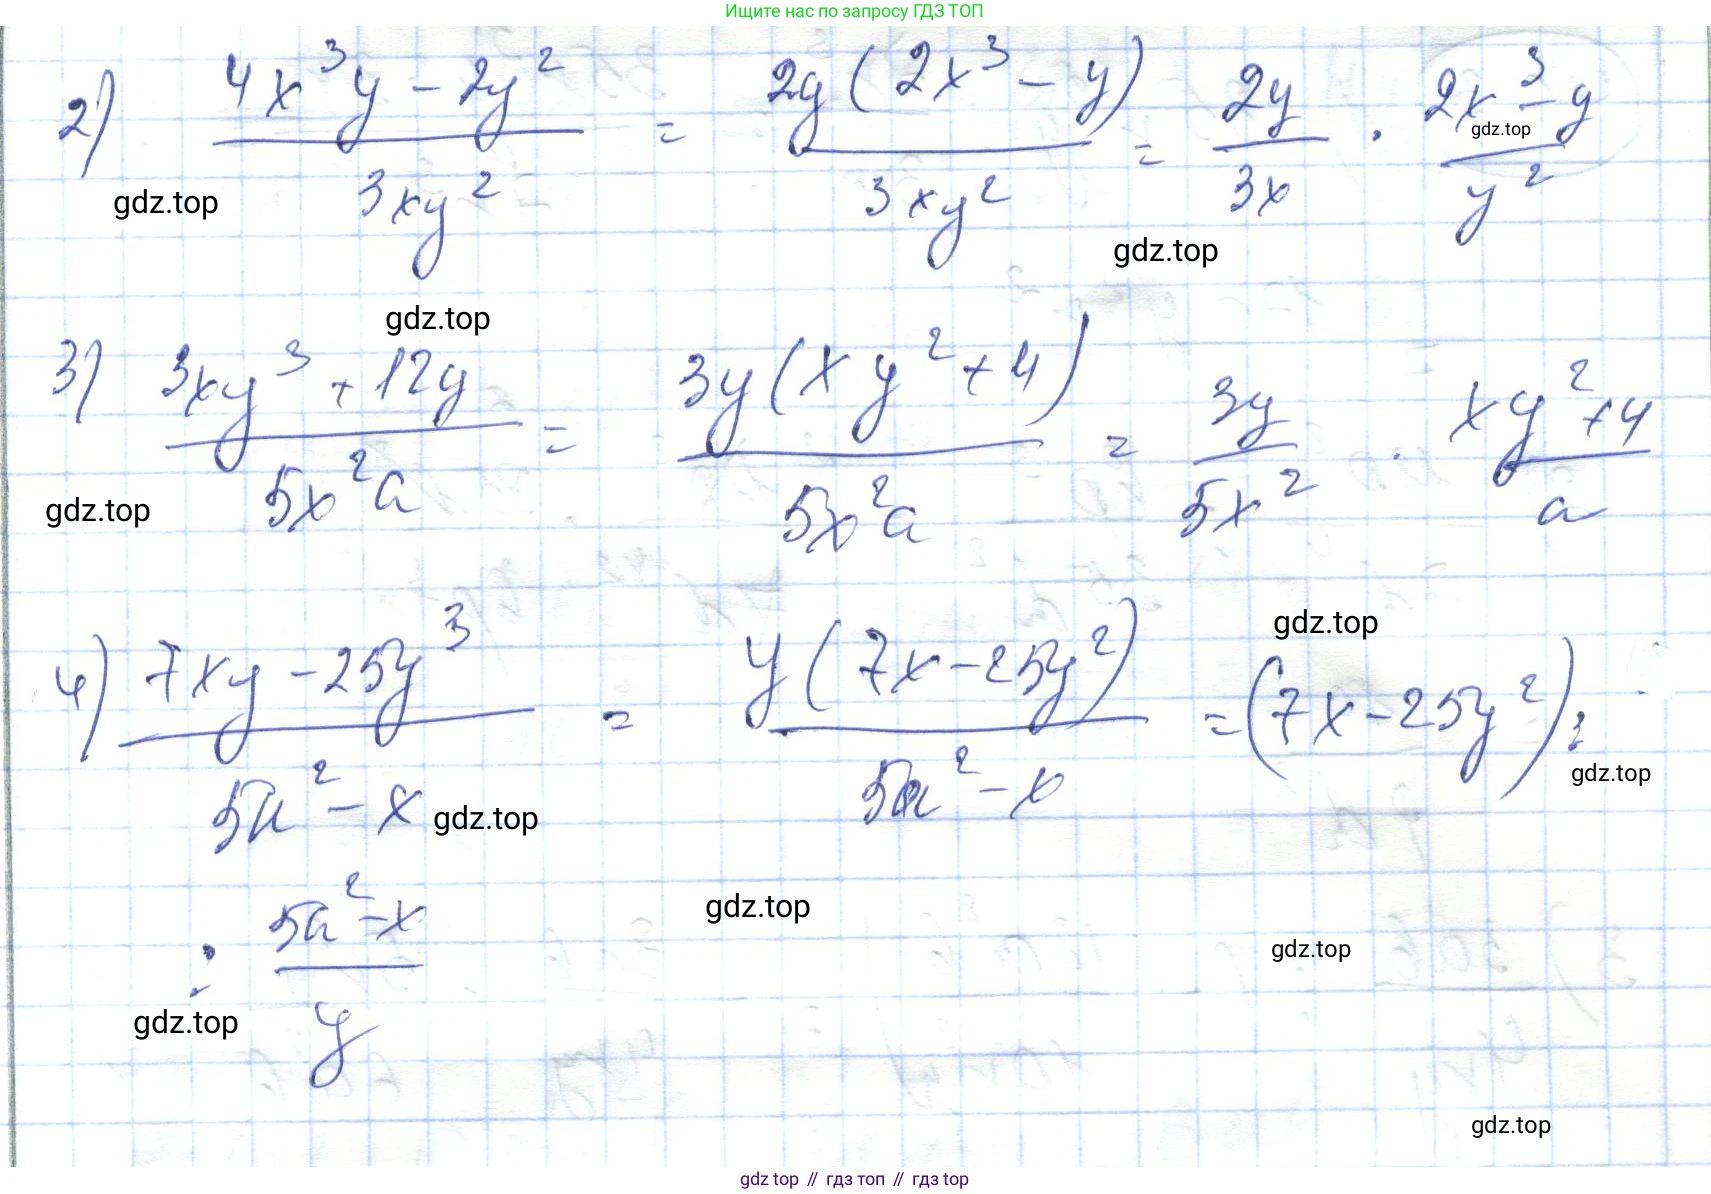 Ищите нас по запросу ГДЗ ТОП
2) (4x³y - 2y²)/(3xy²) = 2y(2x³ - y)/(3xy²) = 2y/3x · (2x³ - y)/y²
gdz.top
gdz.top
gdz.top
gdz.top
3) (3xy³ + 12y)/(5x²a) = 3y(xy² + 4)/(5x²a) = 3y/5x² · (xy² + 4)/a
gdz.top
gdz.top
4) (7xy - 25y³)/(5a² - x) = y(7x - 25y²)/(5a² - x) = (7x - 25y²) :
gdz.top
gdz.top
: (5a² - x)/y
gdz.top
gdz.top
gdz.top
gdz.top
gdz top // гдз топ // гдз top